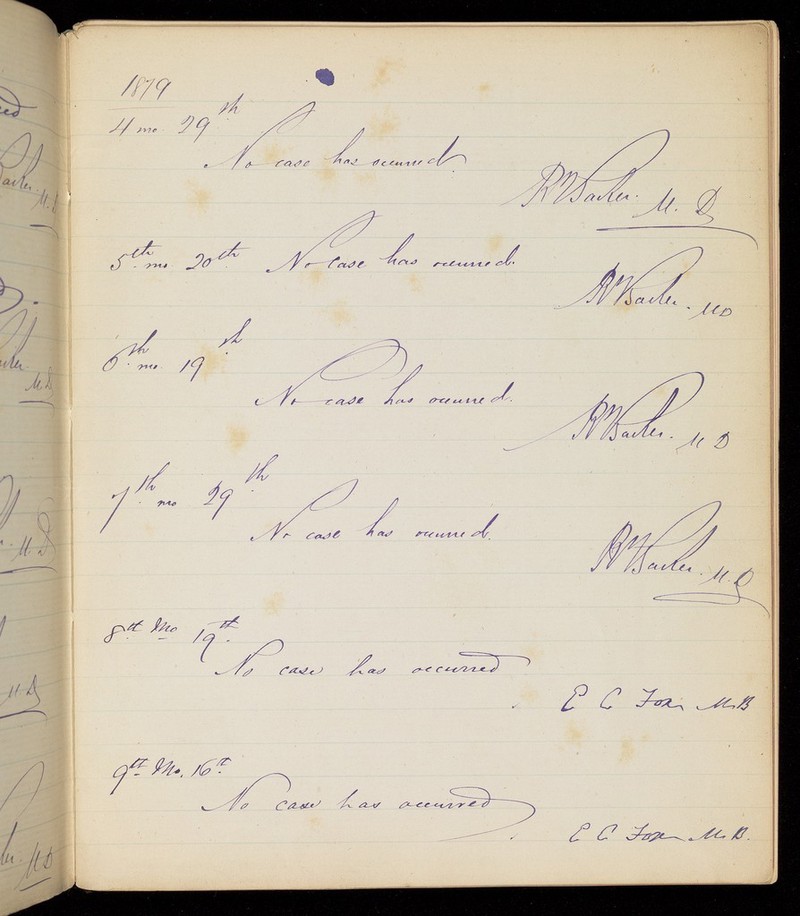 1879
4 mo. 29th
No case has occurred.
R Baker. M. D
5th mo 20th No case has occurred.
R Baker. MD
6th mo. 19th
No case has occurred.
R Baker. M D
7th mo 29th
No case has occurred.
R Baker. M. D
8th Mo 19th.
No case has occurred
E C Fox M.B
9th Mo. 16th.
No case has occurred
E C Fox M.B.
M. D
M.D
M. D
M.D
M.D